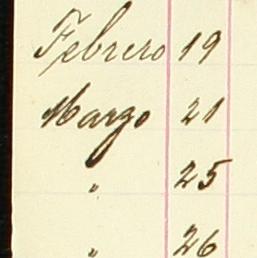 Febrero 19
Marzo 21
" 25
" 26